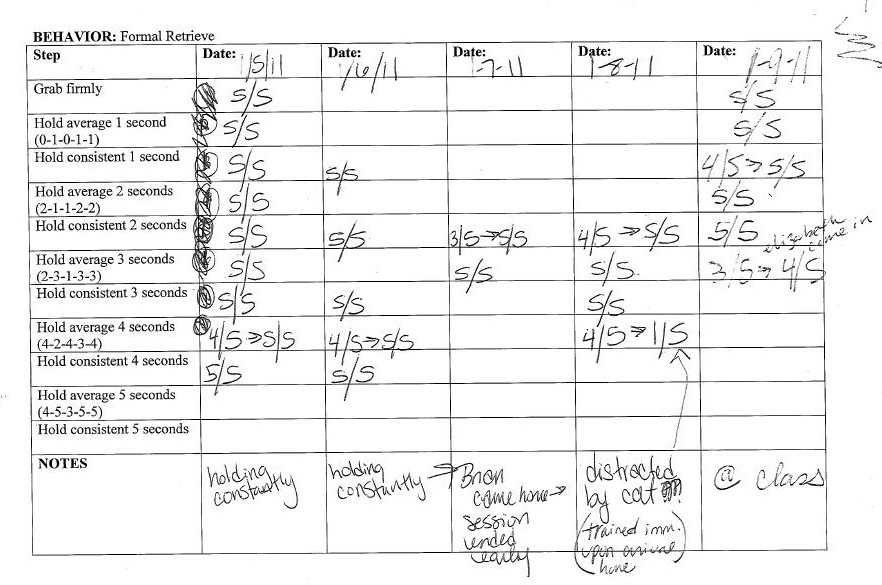 BEHAVIOR: Formal Retrieve
Step Date: 1/5/11 Date: 1/6/11 Date: 1-7-11 Date: 1-8-11 Date: 1-9-11
Grab firmly 5/5 5/5
Hold average 1 second 5/5 5/5
(0-1-0-1-1)
Hold consistent 1 second 5/5 5/5 4/5 → 5/5
Hold average 2 seconds 5/5 5/5
(2-1-1-2-2)
Hold consistent 2 seconds 5/5 5/5 3/5 → 5/5 4/5 → 5/5 5/5
elizabeth
came in
Hold average 3 seconds 5/5 5/5 5/5 3/5 → 4/5
(2-3-1-3-3)
Hold consistent 3 seconds 5/5 5/5 5/5
Hold average 4 seconds 4/5 → 5/5 4/5 → 5/5 4/5 → 1/5
(4-2-4-3-4)
Hold consistent 4 seconds 5/5 5/5
Hold average 5 seconds
(4-5-3-5-5)
Hold consistent 5 seconds
NOTES
holding
constantly
holding
constantly →
Brian
came home →
session
ended
early
distracted
by cat
(trained imm.
upon arrival
home)
@ class